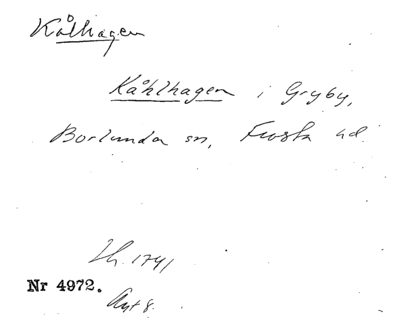 Kålhagen
Kåhlhagen i Gryby,
Borlunda sn, Frosta hd.
Lh. 1741
Nr 4972.
Akt 8.